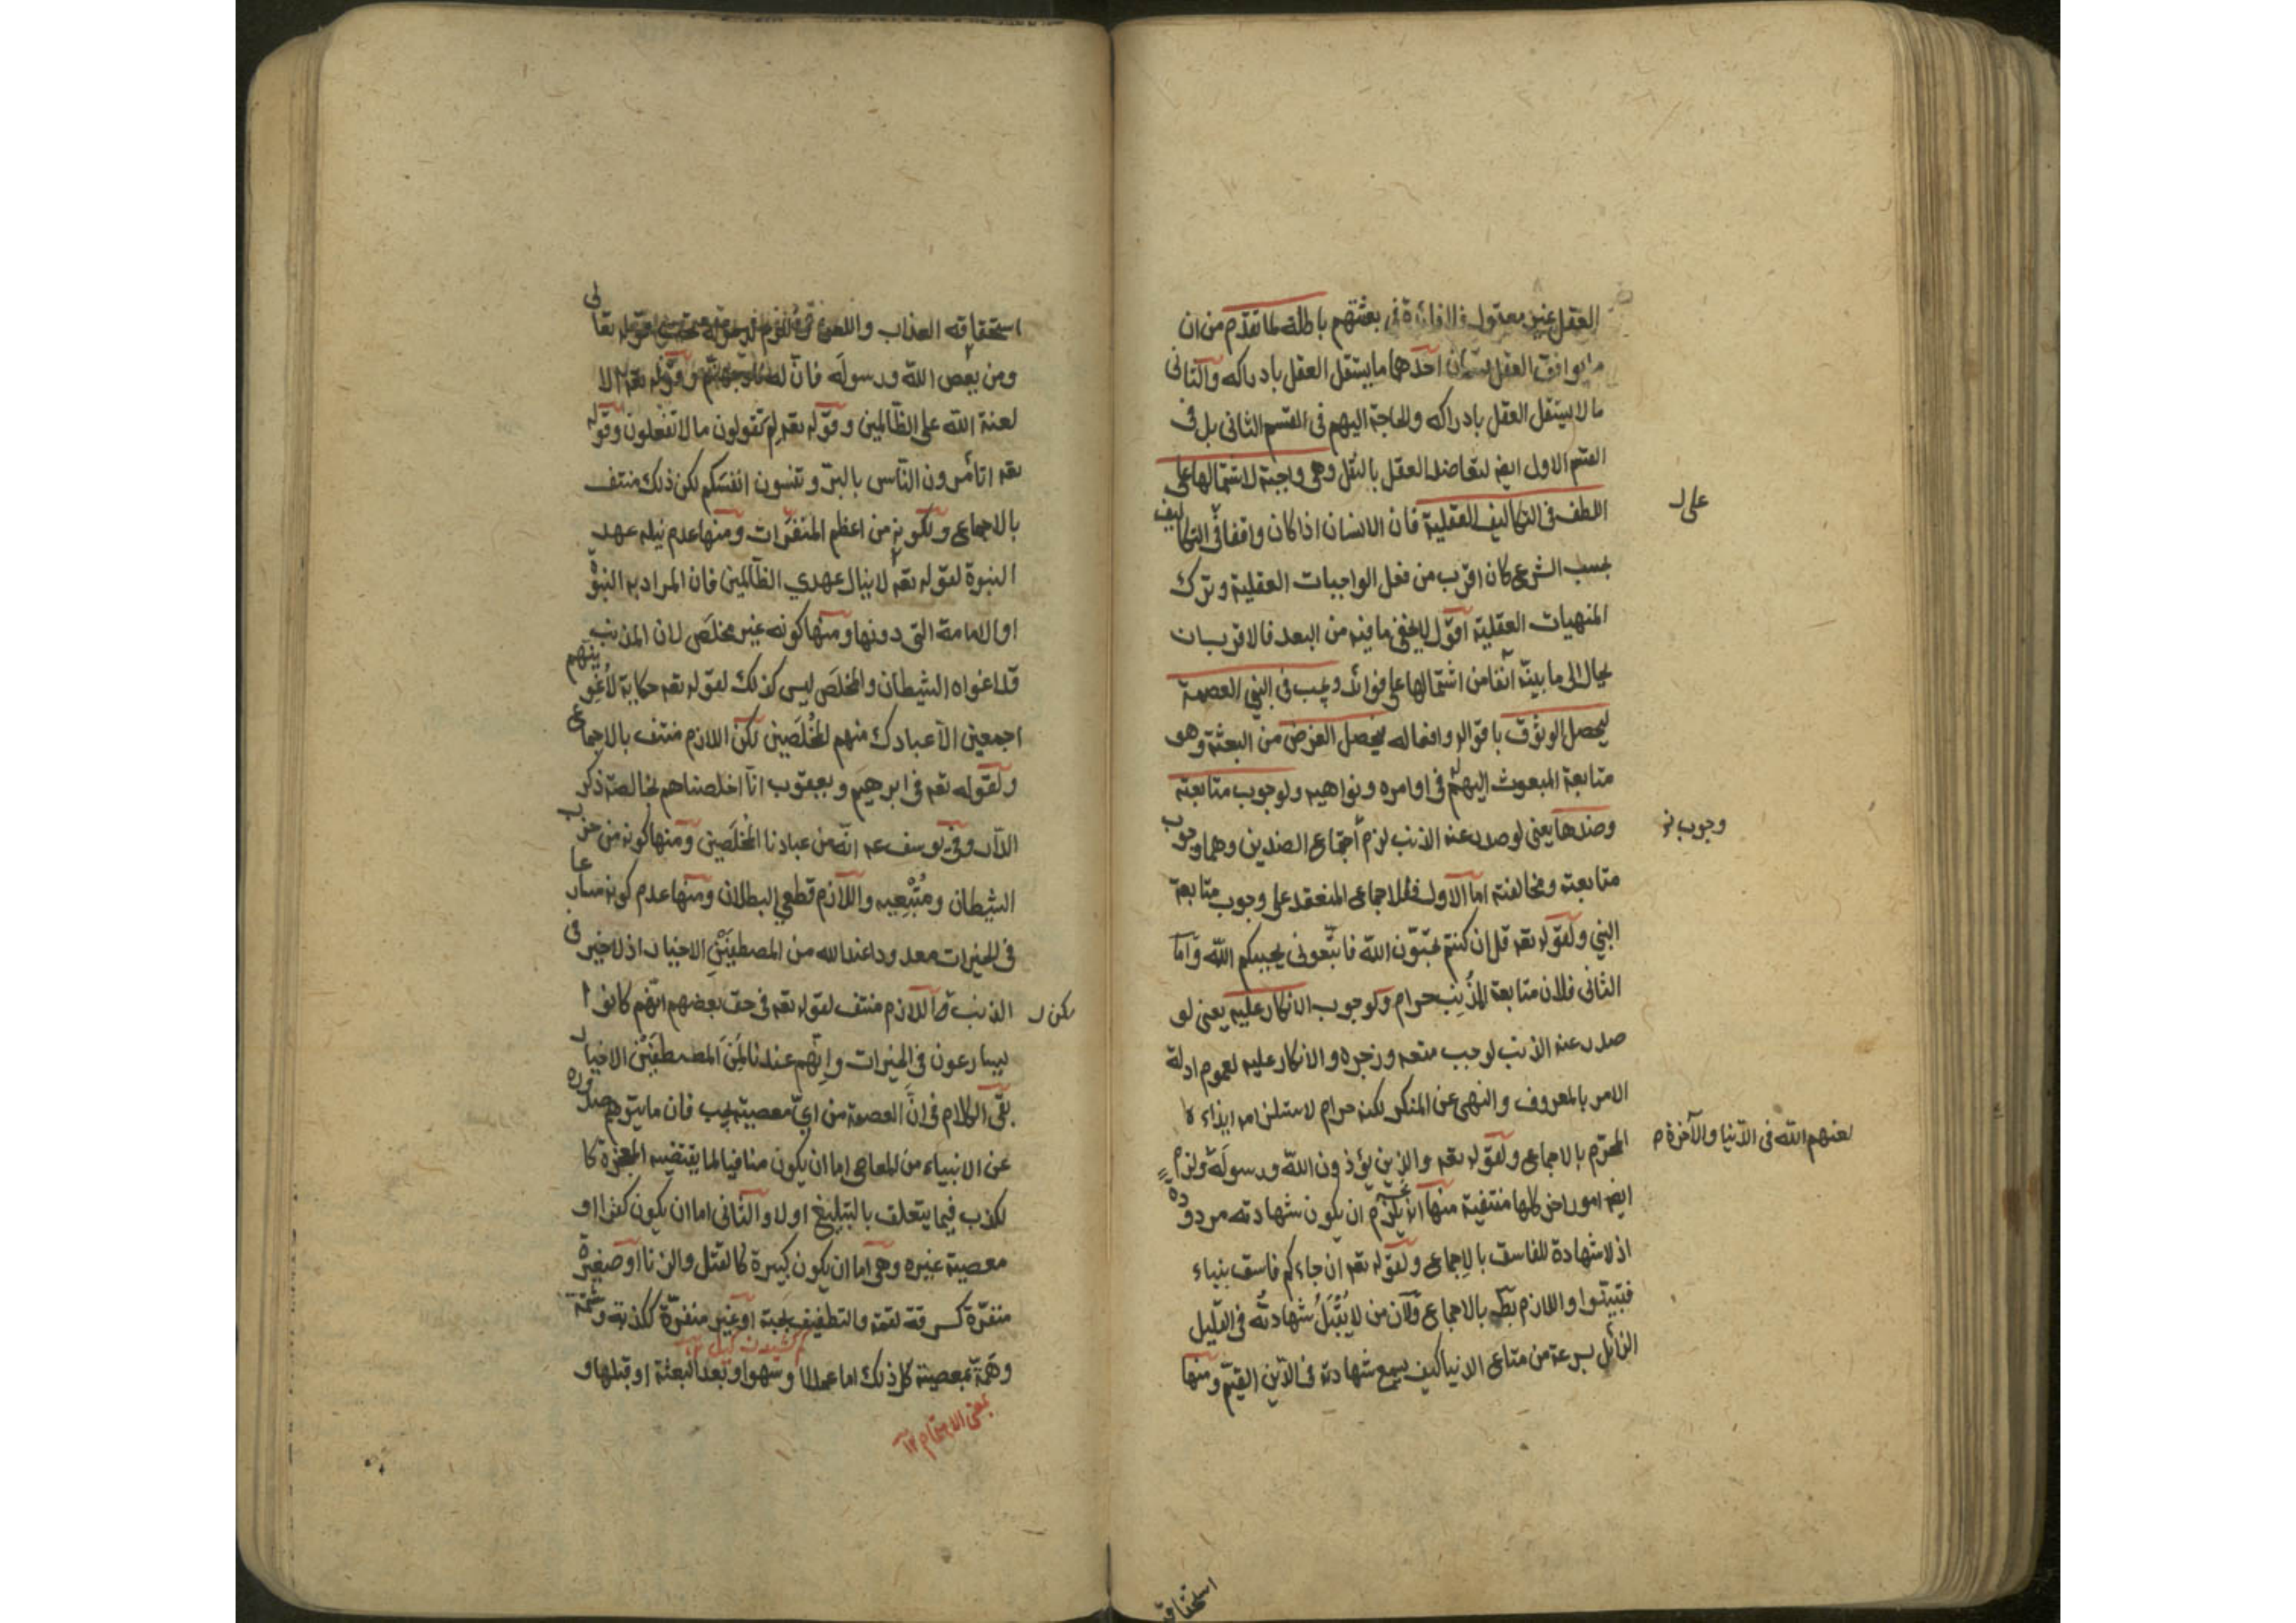 العقل غير معقول فالفائدة فى بعثتهم باطلة لما تقدم من ان
ما يوافق العقل قسمان احدهما ما يستقل العقل بادراكه والثانى
ما لا يستقل العقل بادراكه والحاجة اليهم فى القسم الثانى بل فى
القسم الاول ايضا لتعاضد العقل بالنقل وهى واجبة لاشتمالها على
اللطف فى التكاليف العقلية فان الانسان اذا كان واقفا فى التكاليف
على
بحسب الشرع كان اقرب من فعل الواجبات العقلية وترك
المنهيات العقلية اقول لا يخفى ما فيه من البعد فالاقرب ان
يحال الى ما بينة آنفا من اشتمالها على فوائد ويجب فى النبي العصمة
ليحصل الوثوق باقواله وافعاله فيحصل الغرض من البعثة وهو
متابعة المبعوث اليهم له فى اوامره ونواهيه ولوجوب متابعته
وضدها يعنى لو صدر عنه الذنب لزم اجتماع الضدين وهما وجوب
وجوب
متابعته ومخالفته اما الاول فللاجماع المنعقد على وجوب متابعة
النبي ولقوله تعه قل ان كنتم تحبّون الله فاتّبعونى يحببكم الله وامّا
الثانى فلان متابعة المُذْنِب حرام ولوجوب الانكار عليه يعنى لو
صدر عنه الذنب لوجب منعه وزجره والانكار عليه لعموم ادلة
الامر بالمعروف والنهى عن المنكر لكنه حرام لاستلزامه ايذاءه
المحرّم بالاجماع ولقوله تعه والذين يؤذون الله ورسولَه ولزم
لعنهم الله فى الدّنيا والآخرة م
ايضا امور اخر كلها منتفية منها انه يلزم ان يكون شهادته مردودة
اذ لا شهادة للفاسق بالاجماع ولقوله تعه ان جاءكم فاسق بنباء
فتبيّنوا واللازم بط بالاجماع ولان من لا يُقْبَلُ شهادتُه فى القليل
الزائل بسرعة من متاع الدنيا كيف يسمع شهادته فى الدّين القيّم ومنها
استحقاقه
استحقاقه العذاب واللعن تعالى
ومن يعص الله ورسولَه فانّ له نار جهنّم وقوله تعه الا
لعنة الله على الظّالمين وقوله تعه لِمَ تقولون ما لا تفعلون وقوله
تعه اتأمرون النّاس بالبرّ وتنسون انفسَكم لكن ذلك منتف
بالاجماع ولكونه من اعظم المنفّرات ومنها عدم نيله عهد
النبوة لقوله تعه لا ينال عهدي الظّالمين فان المراد به النبوّة
او الامامة التى دونها ومنها كونه غير مخلَص لان المذنب
قد اغواه الشيطان والمخلَص ليس كذلك لقوله تعه حكاية لأُغْوِينّهم
اجمعين الاّ عبادك منهم المُخْلَصين لكن اللازم منتف بالاجماع
ولقوله تعه فى ابرهيم ويعقوب انّا اخلصناهم بخالصة ذكر
الدّار وفى يوسف عه انّه من عبادنا المُخْلَصين ومنها كونه من حزب
الشيطان ومُتّبِعِيه واللازم قطعي البطلان ومنها عدم كونه مسارعا
فى الخيرات معدودا عند الله من المصطفَيْنَ الاخيار اذ لا خير فى
الذنب واللازم منتف لقوله تعه فى حق بعضهم انّهم كانوا
لكن
يسارعون فى الخيرات وإنّهم عندنا لَمِنَ المصطفَيْنَ الاخيار
بقى الكلام فى انّ العصمة من ايّ معصية يجب فان ما يتوهم صدوره
عن الانبياء من المعاصى اما ان يكون منافيا لما يقتضيه المعجزة كا
لكذب فيما يتعلق بالتبليغ اولا والثانى اما ان يكون كفرا او
معصية غيره وهى اما ان يكون كبيرة كالقتل والزنا او صغيرة
منفّرة كسرقة لقمة والتطفيف بحبة او غير منفرّة ككذبة وشتمة
كم كشيدن كيل
وهَمّة بمعصية كل ذلك اما عمدا او سهوا وبعد البعثة او قبلها و
بمعنى الاهتمام ١٢